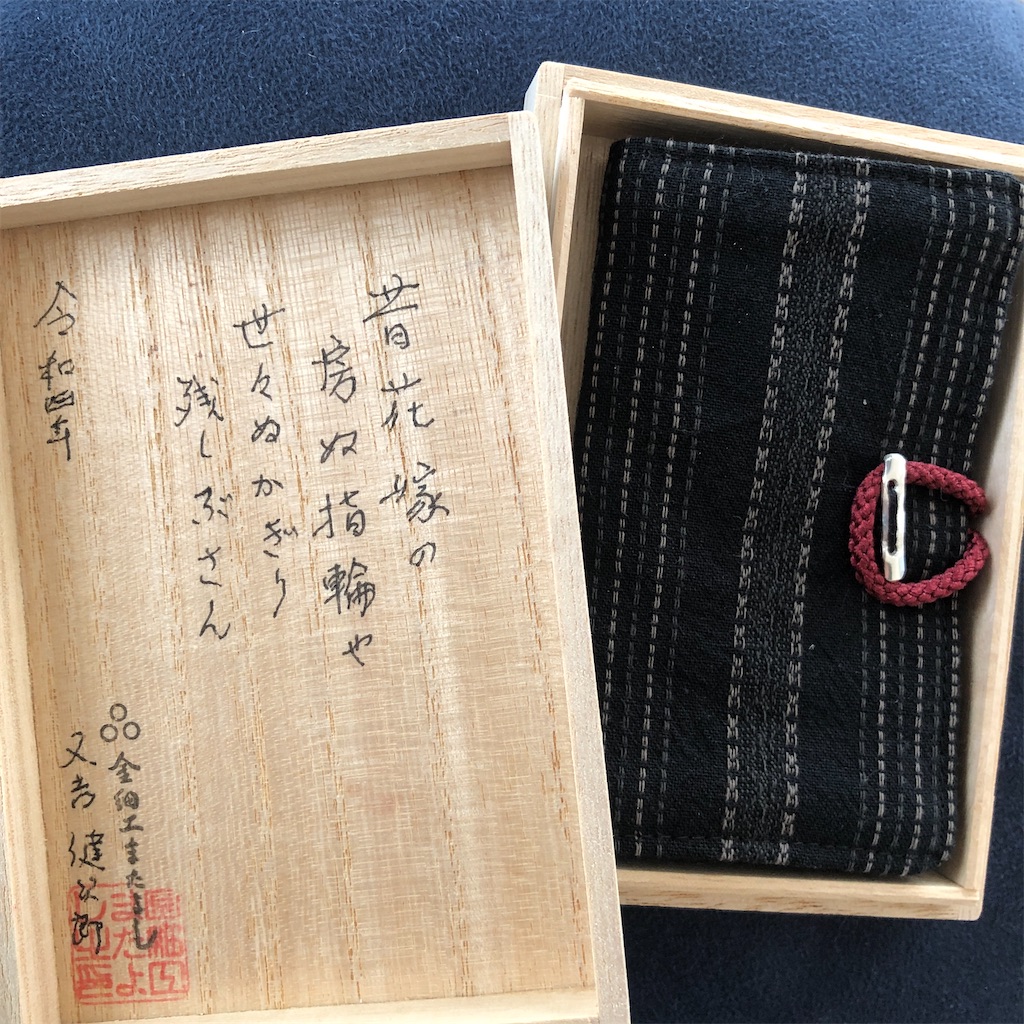 昔花嫁の
房ぬ指輪や
世々ぬかぎり
残しぶさん
令和四年
金細工またよし
又吉健次郎